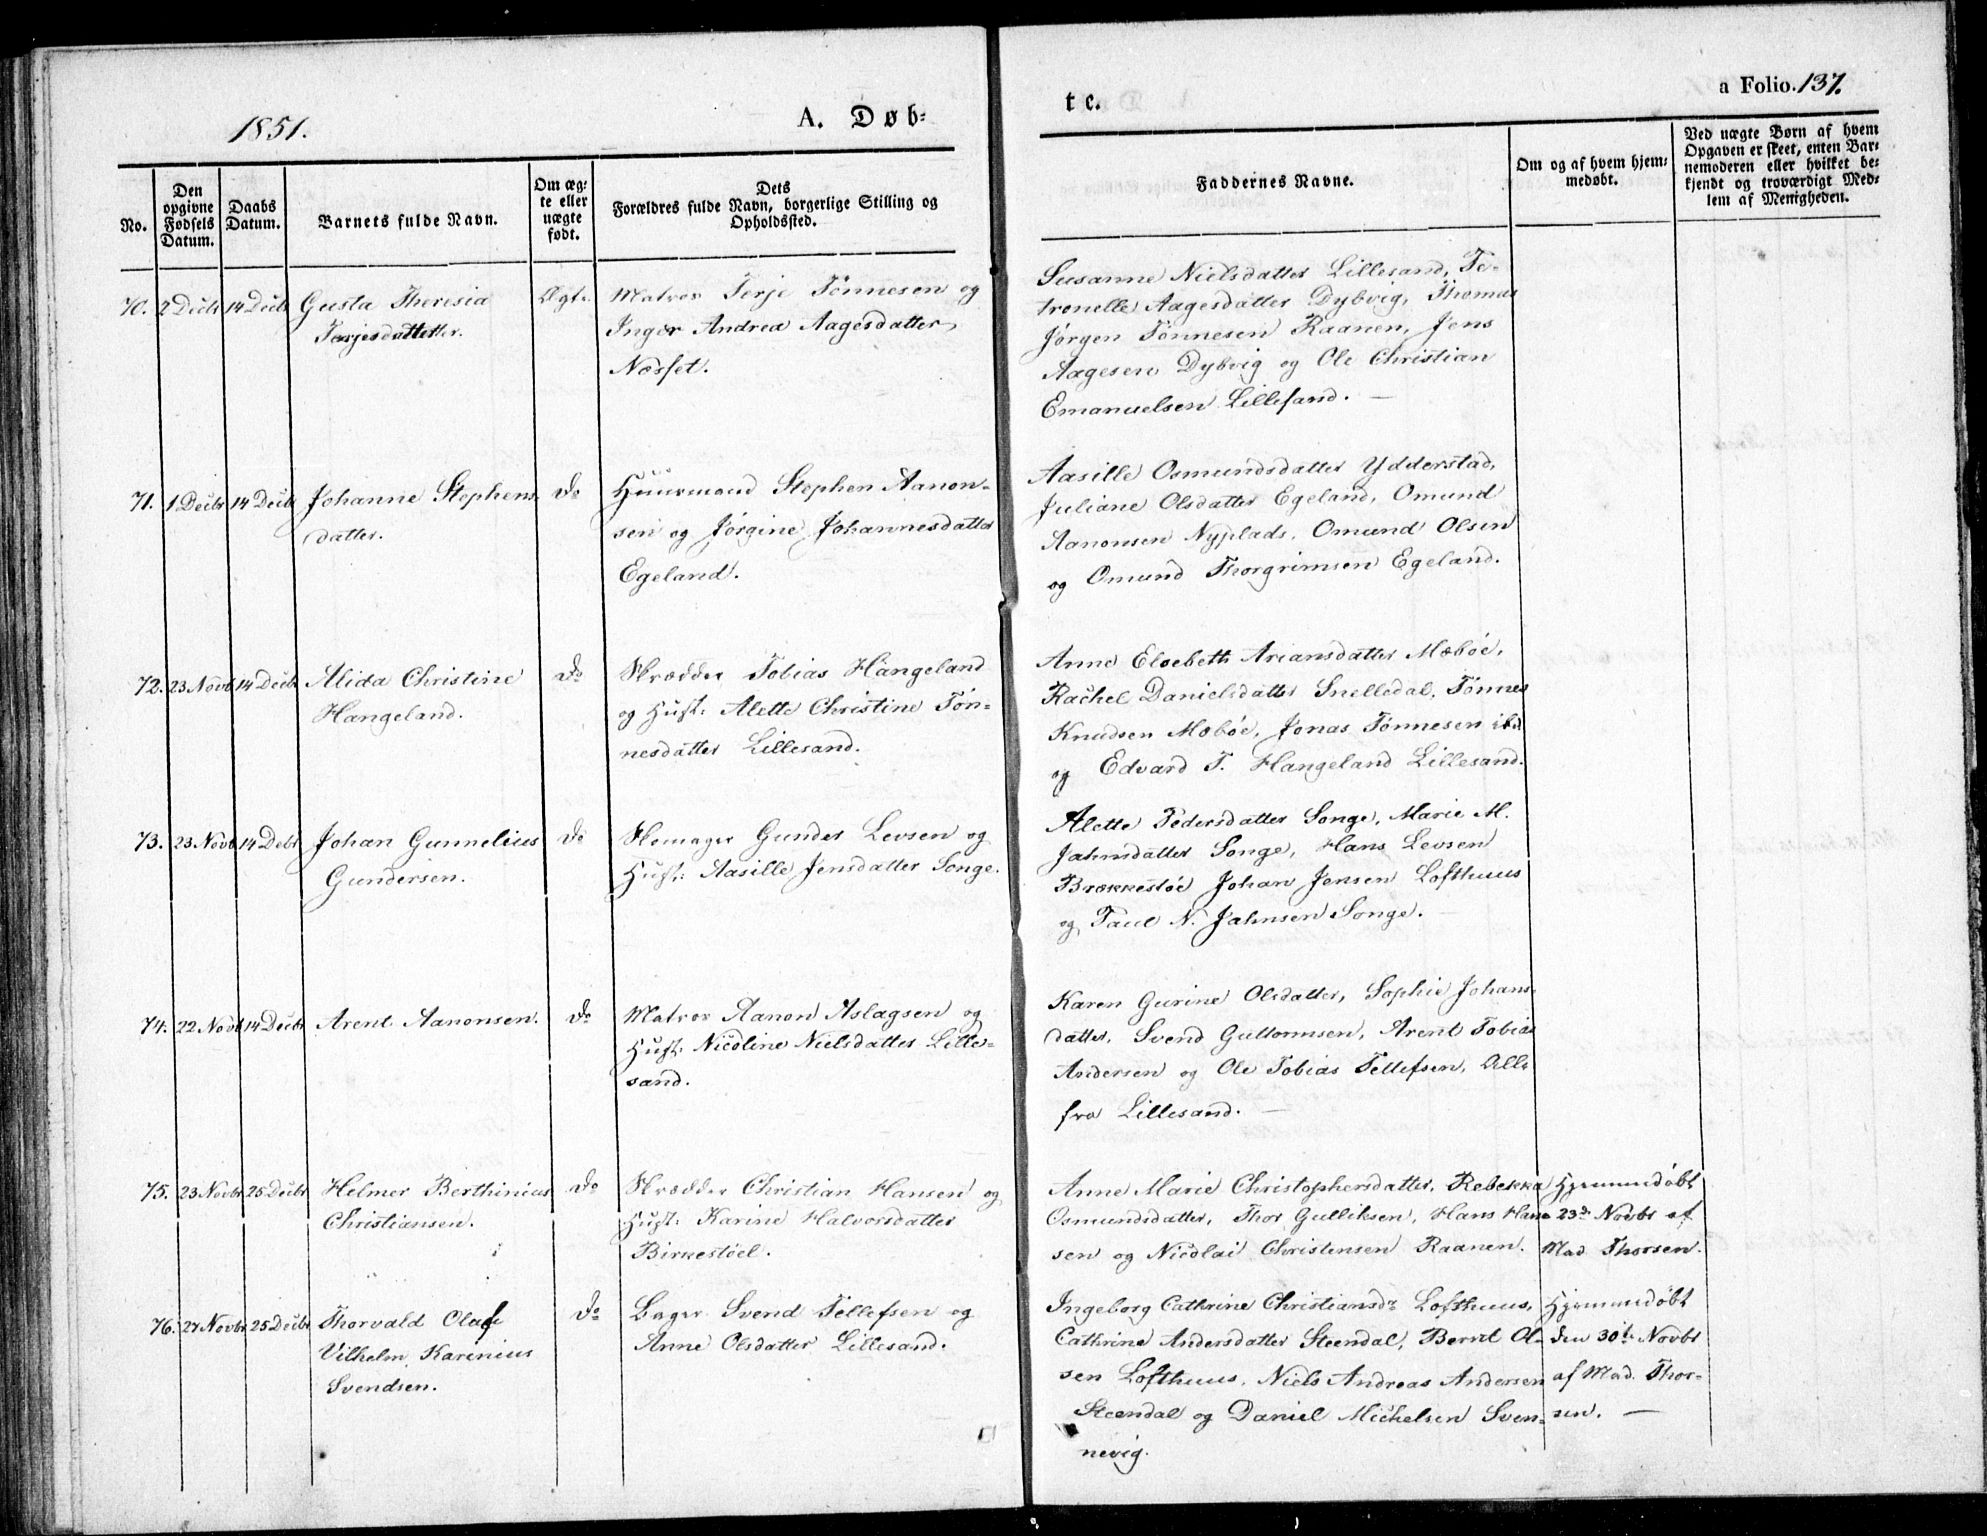 1851.
A. Døb-
te.
a Folio. 137.
No.
Den
opgivne
Fødsels
Datum.
Daabs
Datum.
Barnets fulde Navn.
Om æg-
te eller
uægte
født.
Dets
Forældres fulde Navn, borgerlige Stilling og
Opholdssted.
Faddernes Navne.
Om og af hvem hjem-
medøbt.
Ved uægte Børn af hvem
Opgaven er skeet, enten Bar-
nemoderen eller hvilket be-
kjendt og troværdigt Med-
lem af Menigheden.
70. 2 Decbr 14 Decbr Gusta Theresia
Terjesdatter.
Ægte
Matros Terje Tønnesen og
Inger Andrea Aagesdatter,
Næsset.
Susanne Nielsdatter Lillesand, Pe-
tronelle Aagesdatter Dybvig, Thomas
Jørgen Tønnesen Raanen, Jens
Aagesen Dybvig og Ole Christian
Emanuelsen Lillesand. —
71. 1 Decbr 14 Decbr Johanne Stephens
datter.
Do
Huusmand Stephen Aanon-
sen og Jørgine Johannesdatter
Egeland.
Aasille Osmundsdatter Ydderstad,
Juliane Olsdatter Egeland, Omund
Aanonsen Nyplads, Omund Olsen
og Omund Thorgrimsen Egeland.
72. 23 Novb 14 Decbr Alida Christine
Hangeland.
Do
Skrædder Tobias Hangeland
og Hust: Alette Christine Tøn-
nesdatter Lillesand.
Anne Elsebeth Ariansdatter Mæbøe,
Rachel Danielsdatter Snelledal, Tønnes
Knudsen Mæbøe, Jonas Tønnesen ibd
og Edvard T. Hangeland Lillesand.
73. 23 Novb. 14 Debr Johan Gunnelius
Gundersen.
Do
Skomager Gunder Levsen og
Hust: Aasille Jensdatter Songe.
Alette Pedersdatter Songe, Marie M.
Jahnsdatter Songe, Hans Levsen
Brækkestøe Johan Jensen Lofthuus
og Paul N. Jahnsen Songe.
74. 22 Novb 14 Decbr Arent Aanonsen.
Do
Matros Aanon Aslagsen og
Hust: Nicoline Nielsdatter Lille-
sand.
Karen Gurine Olsdatter, Sophie Johans-
datter, Svend Guttormsen, Arent Tobias
Andersen og Ole Tobias Tellefsen, Alle
fra Lillesand. —
75. 23 Novbr 25 Decbr Helmer Berthinius
Christiansen.
Do
Skrædder Christian Hansen og
Hust: Karine Halvorsdatter
Birkestøel.
Anne Marie Christophersdatter, Rebekka
Osmundsdatter, Thor Gulliksen, Hans Han-
sen og Nicolai Christensen Raanen.
Hjemmedøbt
23d Novbr af
Mad. Thorsen.
76. 27 Novbr 25 Decbr Thorvald Olaf
Vilhelm Karinius
Svendsen.
Do
Bager Svend Tellefsen og
Anne Olsdatter Lillesand.
Ingeborg Cathrine Christiansdr Lofthuus,
Cathrine Andersdatter Steendal, Bernt Ol-
sen Lofthuus, Niels Andreas Andersen
Steendal og Daniel Michelsen Sven-
nevig.
Hjemmedøbt
den 30te Novbr
af Mad. Thor-
sen. —